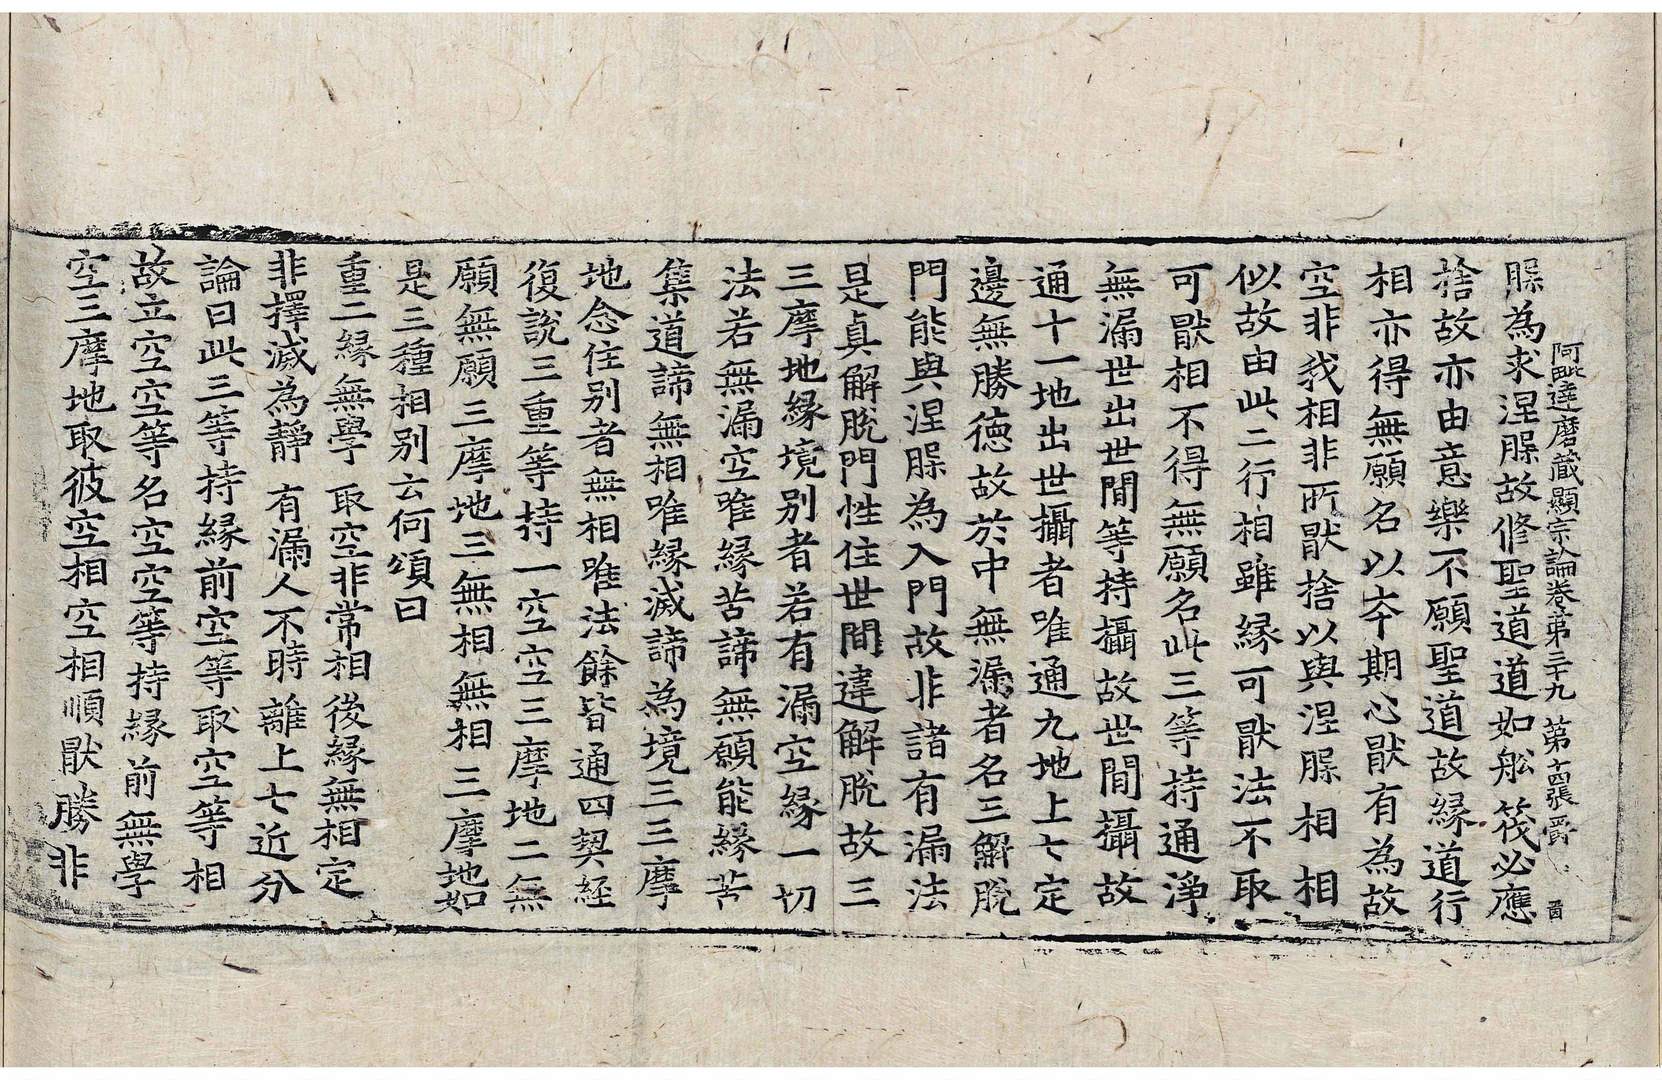 阿毗達磨藏顯宗論卷第三十九 第十四張 爵
𣵀為求涅槃故修聖道道如舩筏必應
捨故亦由意樂不願聖道故緣道行
相亦得無願名以夲期心猒有為故
空非我相非所猒捨以與涅槃相相
似故由此二行相雖緣可猒法不取
可猒相不得無願名此三等持通淨
無漏世出世閒等持攝故世閒攝故
通十一地出世攝者唯通九地上七定
邊無勝德故於中無漏者名三解脫
門能與涅槃為入門故非諸有漏法
是真解脫門性住世間違解脫故三
三摩地緣境別者若有漏空緣一切
法若無漏空唯緣苦諦無願能緣苦
集道諦無相唯緣滅諦為境三三摩
地念住別者無相唯法餘皆通四契經
復說三重等持一空空三摩地二無
願無願三摩地三無相無相三摩地如
是三種相別云何頌曰
重二緣無學 取空非常相 後緣無相定
非擇滅為靜 有漏人不時 離上七近分
論曰此三等持緣前空等取空等相
故立空空等名空空等持緣前無學
空三摩地取彼空相空相順猒勝非